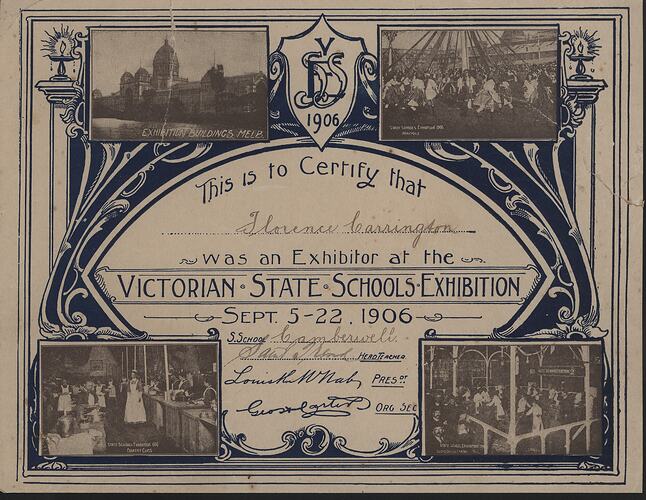 EXHIBITION BUILDINGS MELB.
V
SDS
1906
STATE SCHOOLS EXHIBITION 1906
MAYPOLE
This is to Certify that
Florence Carrington
was an Exhibitor at the
VICTORIAN STATE SCHOOLS EXHIBITION
SEPT. 5-22, 1906
S. SCHOOL Camberwell
HEAD TEACHER
PRES DT
ORG SEC
STATE SCHOOLS EXHIBITION 1906
COOKERY CLASS
STATE SCHOOLS EXHIBITION